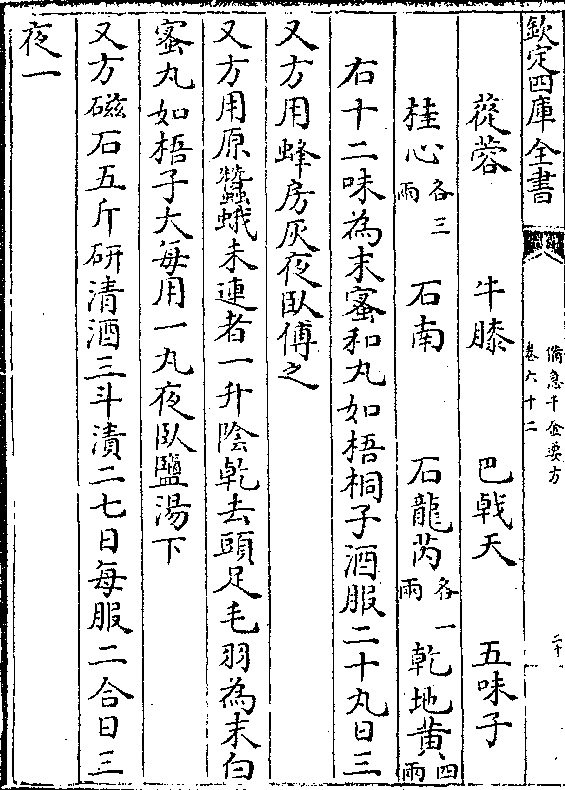 欽定四庫全書
備急千金要方
卷六十二
二十
蓯蓉 牛膝 巴戟天 五味子
桂心各三兩 石南 石龍芮各一兩 乾地黄四兩
右十二味為末蜜和丸如梧桐子酒服二十丸日三
又方用蜂房灰夜臥傅之
又方用原蠶蛾未連者一升陰乾去頭足毛羽為末白
蜜丸如梧子大每用一丸夜臥鹽湯下
又方磁石五斤研清酒三斗漬二七日每服二合日三
夜一